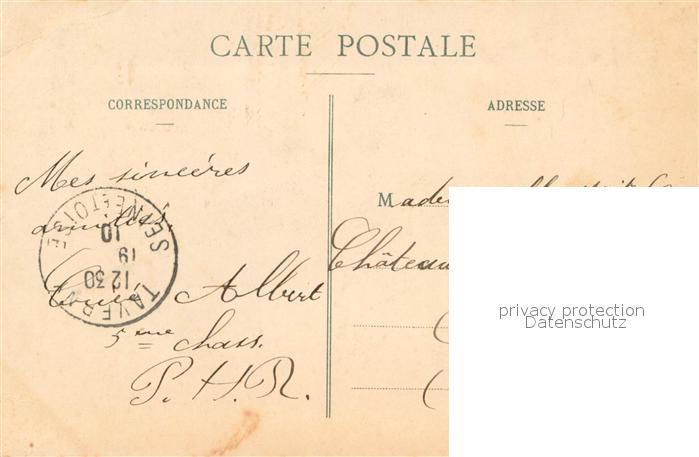 CARTE POSTALE
CORRESPONDANCE
ADRESSE
Mes sincères
amitiés.
Albert
5ème Chass.
P. H. R.
TAVERN
SEINE-ET-OISE
12 30
19
10
M
Château
privacy protection
Datenschutz